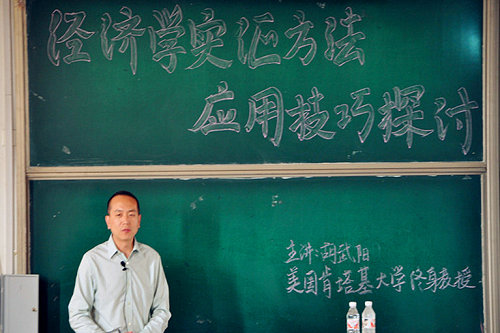 经济学实证方法
应用技巧探讨
主讲:胡武阳
美国肯塔基大学终身教授